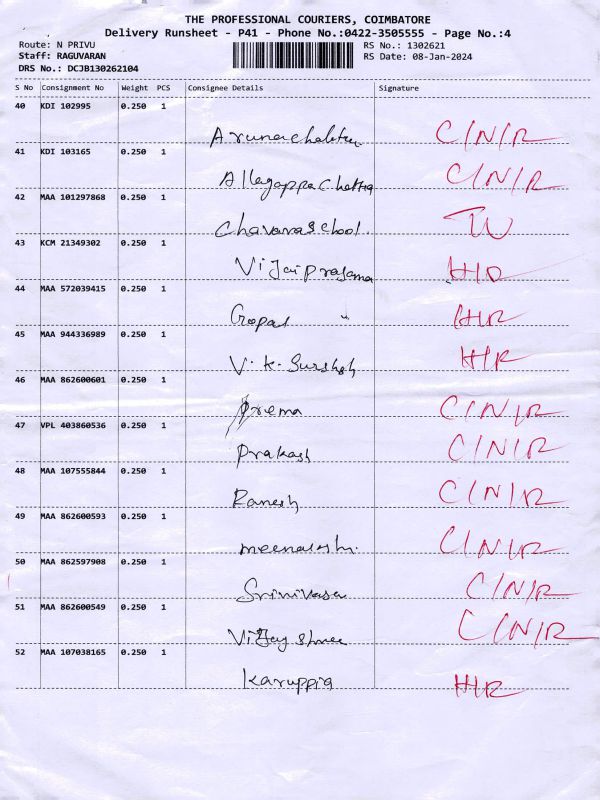 THE PROFESSIONAL COURIERS, COIMBATORE
Delivery Runsheet - P41 - Phone No.:0422-3505555 - Page No.:4
Route: N PRIVU RS No.: 1302621
Staff: RAGUVARAN RS Date: 08-Jan-2024
DRS No.: DCJB130262104
S No Consignment No Weight PCS Consignee Details Signature
40 KDI 102995 0.250 1
C/N/R
41 KDI 103165 0.250 1
Allagappa C/N/R
42 MAA 101297868 0.250 1
Chavara School.
43 KCM 21349302 0.250 1
Vijai prasanna
44 MAA 572039415 0.250 1
Gopal H/R
45 MAA 944336989 0.250 1
V. K. H/R
46 MAA 862600601 0.250 1
Prema C/N/R
47 VPL 403860536 0.250 1
Prakash C/N/R
48 MAA 107555844 0.250 1
Ramesh C/N/R
49 MAA 862600593 0.250 1
meenakshi. C/N/R
50 MAA 862597908 0.250 1
Srinivasan C/N/R
51 MAA 862600549 0.250 1
Vijay shree C/N/R
52 MAA 107038165 0.250 1
Karuppia H/R